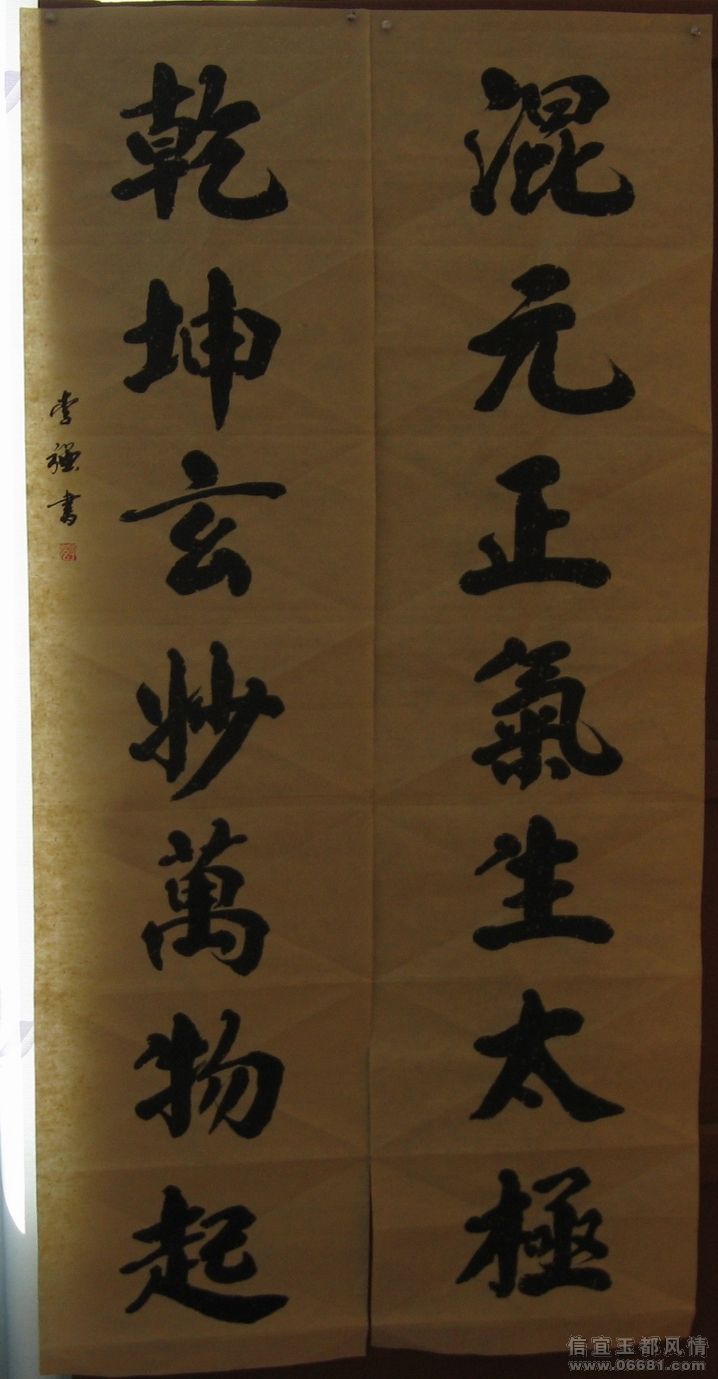 混元正氣生太極
乾坤玄妙萬物起
李强書
信宜玉都风情
www.06681.com